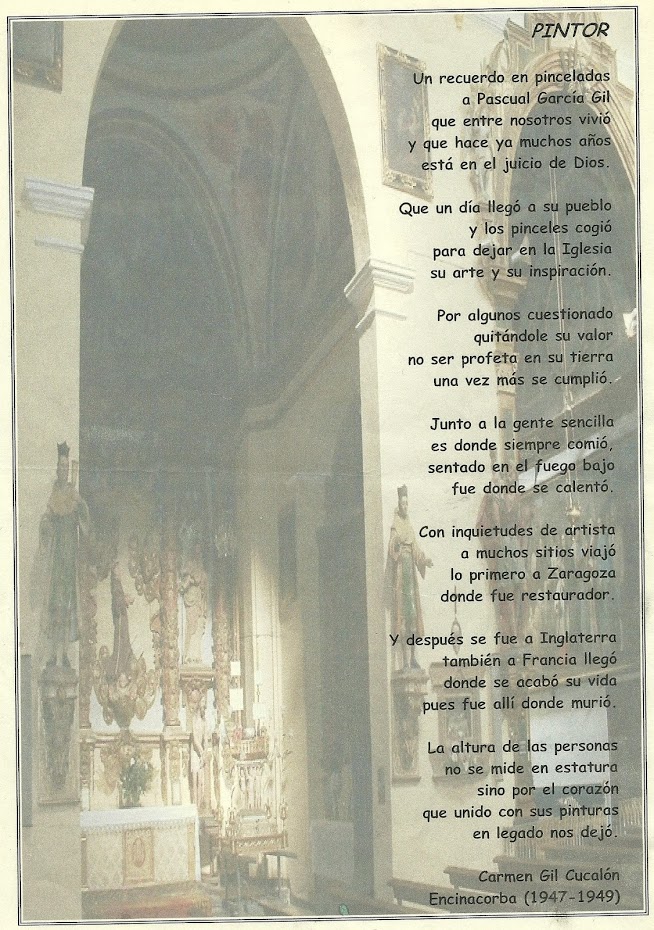 PINTOR
Un recuerdo en pinceladas
a Pascual García Gil
que entre nosotros vivió
y que hace ya muchos años
está en el juicio de Dios.
Que un día llegó a su pueblo
y los pinceles cogió
para dejar en la Iglesia
su arte y su inspiración.
Por algunos cuestionado
quitándole su valor
no ser profeta en su tierra
una vez más se cumplió.
Junto a la gente sencilla
es donde siempre comió,
sentado en el fuego bajo
fue donde se calentó.
Con inquietudes de artista
a muchos sitios viajó
lo primero a Zaragoza
donde fue restaurador.
Y después se fue a Inglaterra
también a Francia llegó
donde se acabó su vida
pues fue allí donde murió.
La altura de las personas
no se mide en estatura
sino por el corazón
que unido con sus pinturas
en legado nos dejó.
Carmen Gil Cucalón
Encinacorba (1947-1949)